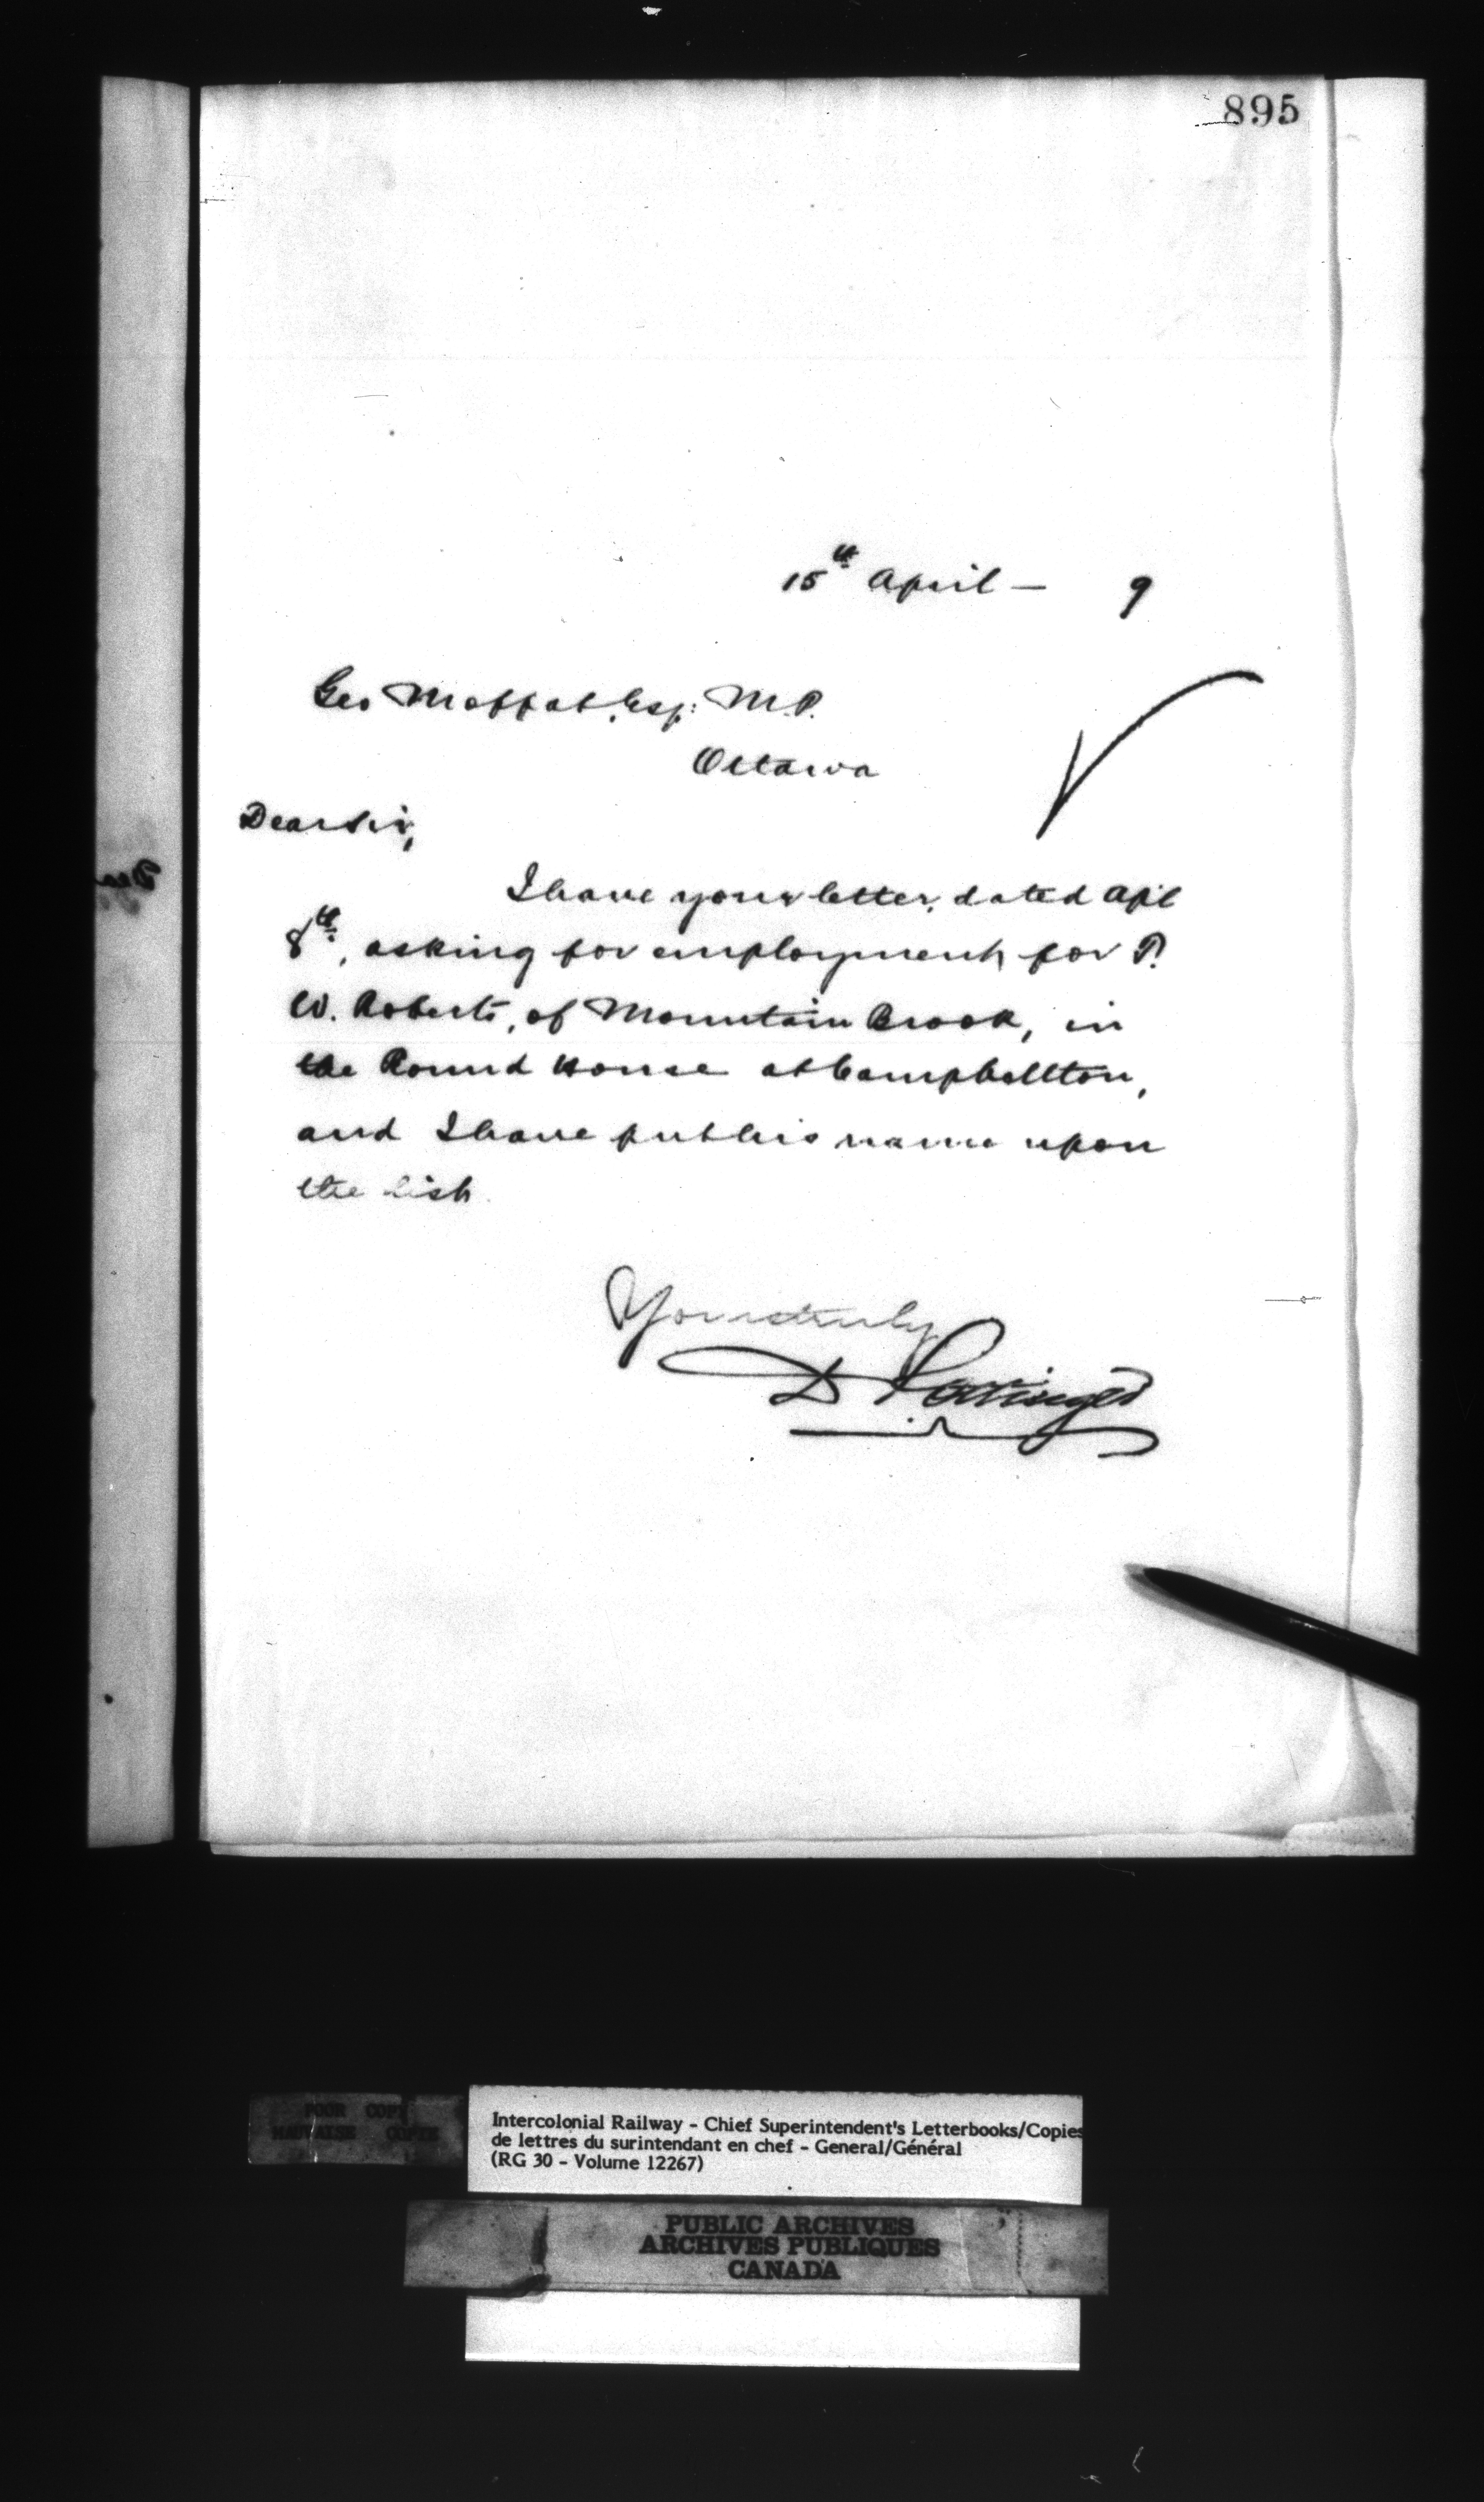 895
15th April — 9
Geo Moffat, Esq: M.P.
Ottawa
Dear Sir,
I have your letter, dated Apl
8th, asking for employment for P.
W. Roberts, of Mountain Brook, in
the Round House at Campbellton,
and I have put his name upon
the list.
Yours truly
D Pottinger
POOR COPY
MAUVAISE COPIE
Intercolonial Railway - Chief Superintendent's Letterbooks/Copies
de lettres du surintendant en chef - General/Général
(RG 30 - Volume 12267)
PUBLIC ARCHIVES
ARCHIVES PUBLIQUES
CANADA